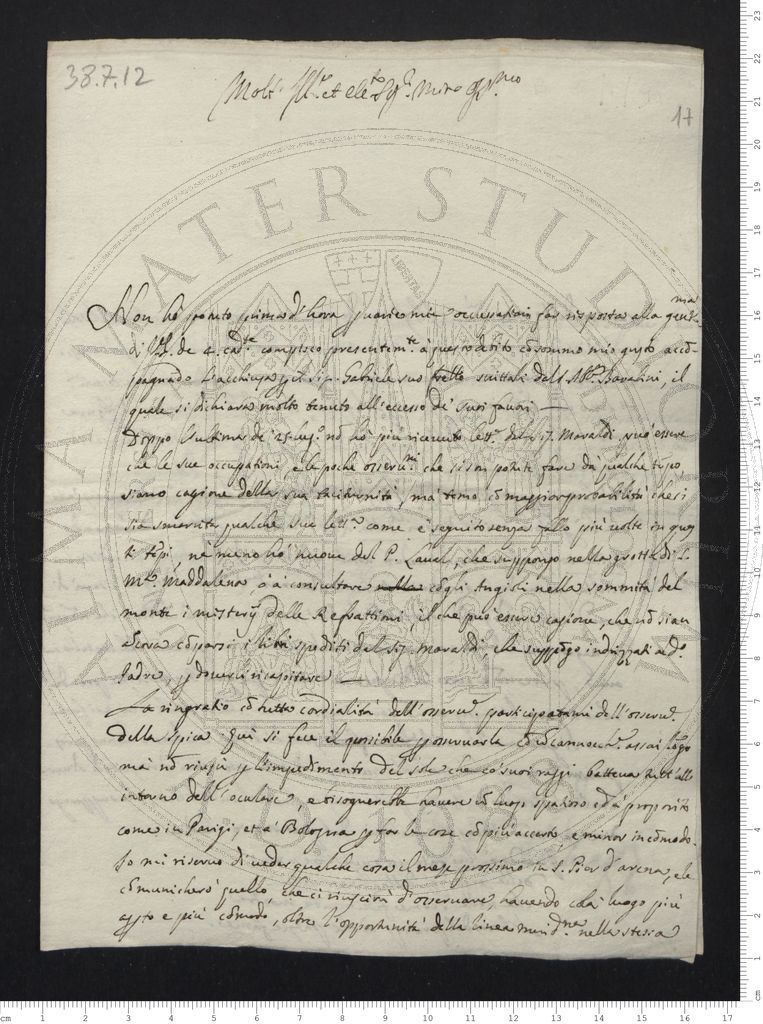 38.7.12
Molt' Ill.re et ecc.te Sig.r mio
17
Non ho potuto prima d'hora p varie mie occupationi far risposta alla gent.ma
di V.S. de 4. cad.te compisco presentem.te à questo debito cõ sommo mio gusto accõ-
pagnãdo l'acchiusa p il sig. Gabriele suo frello il
quale si dichiara molto tenuto all'eccesso de' suoi favori —
Doppo l'ultima de' 25 lug.o nõ hò più ricevuto lett.e del Sig. Maraldi, può essere
che le sue occupationi, e le poche osserv.ni che si sin potute fare da qualche tẽpo
siano cagione della sua taciturnità, mà temo cõ maggior probabilità che si
sia smarrita qualche sue lett.e come è seguito senza fallo più volte in ques
ti tẽpi, ne meno hò nuove del P. Laval, che suppongo nella grotta di S.
M.a Maddalena, ò à consultare cõ gli Angioli nella sommità del
monte i misterij delle Refrattioni, il che può essere cagione, che nõ sian
ancora cõparsi i libri spediti dal Sig. Maraldi, che suppõgo indrizzati a d.o
Padre, p doverci ricapitare —
La ringratio cõ tutta cordialità dell'osserv.e participatami dell'osserv.e
della spica. Qui si fece il possibile p osservarla cõ cannocch.e assai lõgo
mà nõ riuscì p l'impedimento del sole che co' suoi raggi batteva tutt'all'
intorno dell'oculare, e bisognerebbe havere luogo spatioso ed à proposito
come in Parigi, et à Bologna p far le cose cõ più accerto, e minor incõmodo.
Io mi riservo di veder qualche cosa il mese prossimo in S. Pier d'arena, e le
cõmunicherò quello, che ci riuscirà d'osservare havendo colà luogo più
e più cõmodo, oltre l'opportunità della linea merid.na nella stessa
ALMA MATER STUDIORUM
LIBERTAS
A.D. 1088